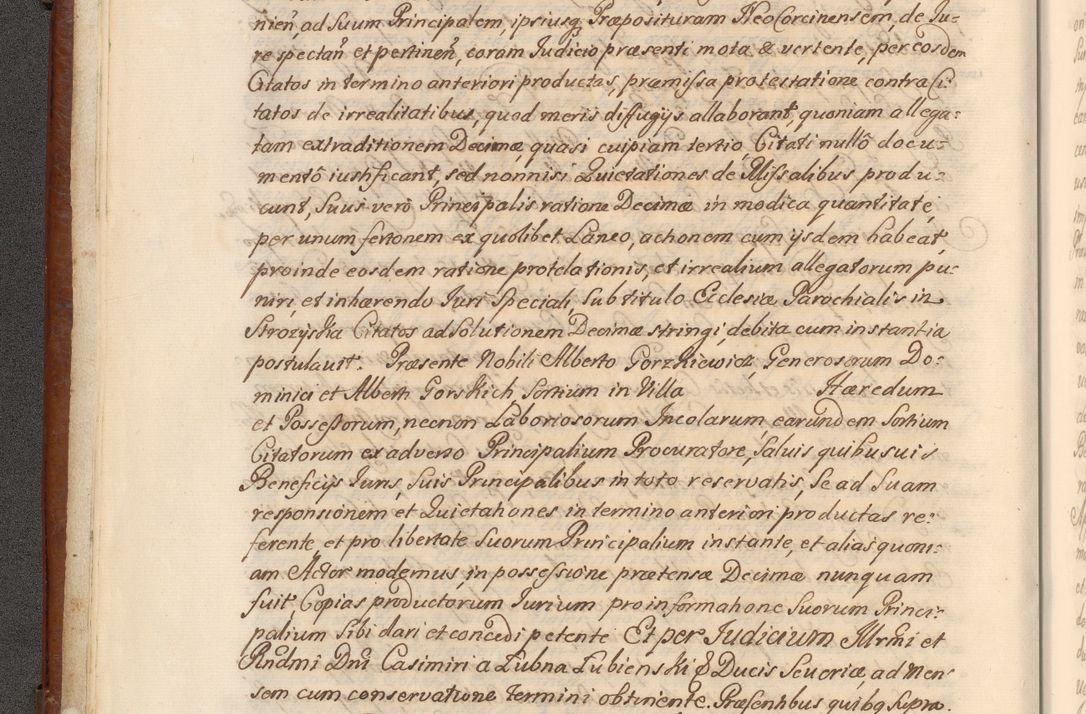 nien̄ ad Suum Principalem, ipsiusq; Præposituram NeoCorcinensem, de Ju=
re spectan̄ et pertinen̄, coram Judicio præsenti mota & vertente, per eosdem
Citatos in termino anteriori productas, præmissa protestatione contra Ci:
tatos de irrealitatibus, quod meris diffugijs allaborant, quoniam allega=
tam extraditionem Decimæ, quasi cuipiam tertio, Citati nullô docu=
mentô iustificant, sed nonnisi Quietationes de Missalibus produ=
cunt, Suus verò Principalis ratione Decimæ in modica quantitate,
per unum fertonem ex quolibet Laneo, actionem cum ijsdem habeat,
proinde eosdem ratione protelationis, et irrealium allegatorum pu=
niri, et inhærendo Juri Speciali, Sub titulo Ecclesiæ Parochialis in
Strozyska Citatos ad Solutionem Decimæ stringi, debita cum instantia
postulauit. Præsente Nobili Alberto Gorzkiewicz, Generosorum Do=
minici et Alberti Gorskich Sortium in Villa Hæredum
et Possessorum, necnon Laboriosorum Incolarum, earundem Sortium
Citatorum ex adverso Principalium Procuratore, Saluis quibusuis
Beneficijs Juris, Suis Principalibus in toto reservatis, Se ad Suam
responsionem et Quietationes in termino anteriori productas re=
ferente, et pro libertate Suorum Principalium instante, et alias quoni=
am Actor modernus, in possessione prætensæ Decimæ nunquam
fuit, Copias productorum Jurium pro informatione Suorum Princi=
palium Sibi dari et concedi petente Et per Judicium Illrm̄i et
Rn̄dmi Dn̄i Casimiri a Łubna Łubienski & Ducis Seueriæ, ad Men=
sem cum conservatione Termini obtinente. Præsentibus quibq Supra.